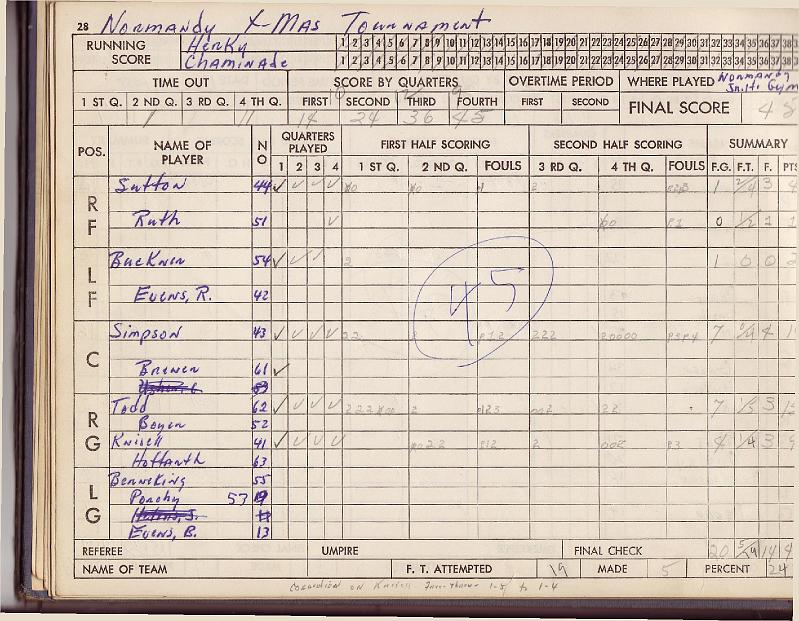 28 Normandy X-Mas Tournament
RUNNING SCORE
Herky 1 2 3 4 5 6 7 8 9 10 11 12 13 14 15 16 17 18 19 20 21 22 23 24 25 26 27 28 29 30 31 32 33 34 35 36 37 38
Chaminade 1 2 3 4 5 6 7 8 9 10 11 12 13 14 15 16 17 18 19 20 21 22 23 24 25 26 27 28 29 30 31 32 33 34 35 36 37 38
TIME OUT SCORE BY QUARTERS OVERTIME PERIOD WHERE PLAYED Normandy Jr. Hi. Gym
1 ST Q. 2 ND Q. 3 RD Q. 4 TH Q. FIRST SECOND THIRD FOURTH FIRST SECOND FINAL SCORE 45
1 11 14 24 36 45
POS. NAME OF PLAYER NO QUARTERS PLAYED FIRST HALF SCORING SECOND HALF SCORING SUMMARY
1 2 3 4 1 ST Q. 2 ND Q. FOULS 3 RD Q. 4 TH Q. FOULS F.G. F.T. F. PTS
RF
Sutton 44 2 1 2/4 3 4
Ruth 51 P1 0 1/2 1 1
LF
Buckner 54 2 1 0 0 2
Evens, R. 42
45
C
Simpson 43 22 2 P12 222 20000 P3P4 7 4
Brewer 61
RG
Todd 62 2 P123 22 7 1/5 3
Boyer 52
Knisell 41 022 P12 2 P3 4 1/4 3 9
Hoffarth 63
LG
Benneking 55
Ponchy 53
Evens, B. 13
REFEREE UMPIRE FINAL CHECK 20 5/19 14
NAME OF TEAM F. T. ATTEMPTED 19 MADE 5 PERCENT 24
Correction on Knisell Free-throw- 1-5 to 1-4